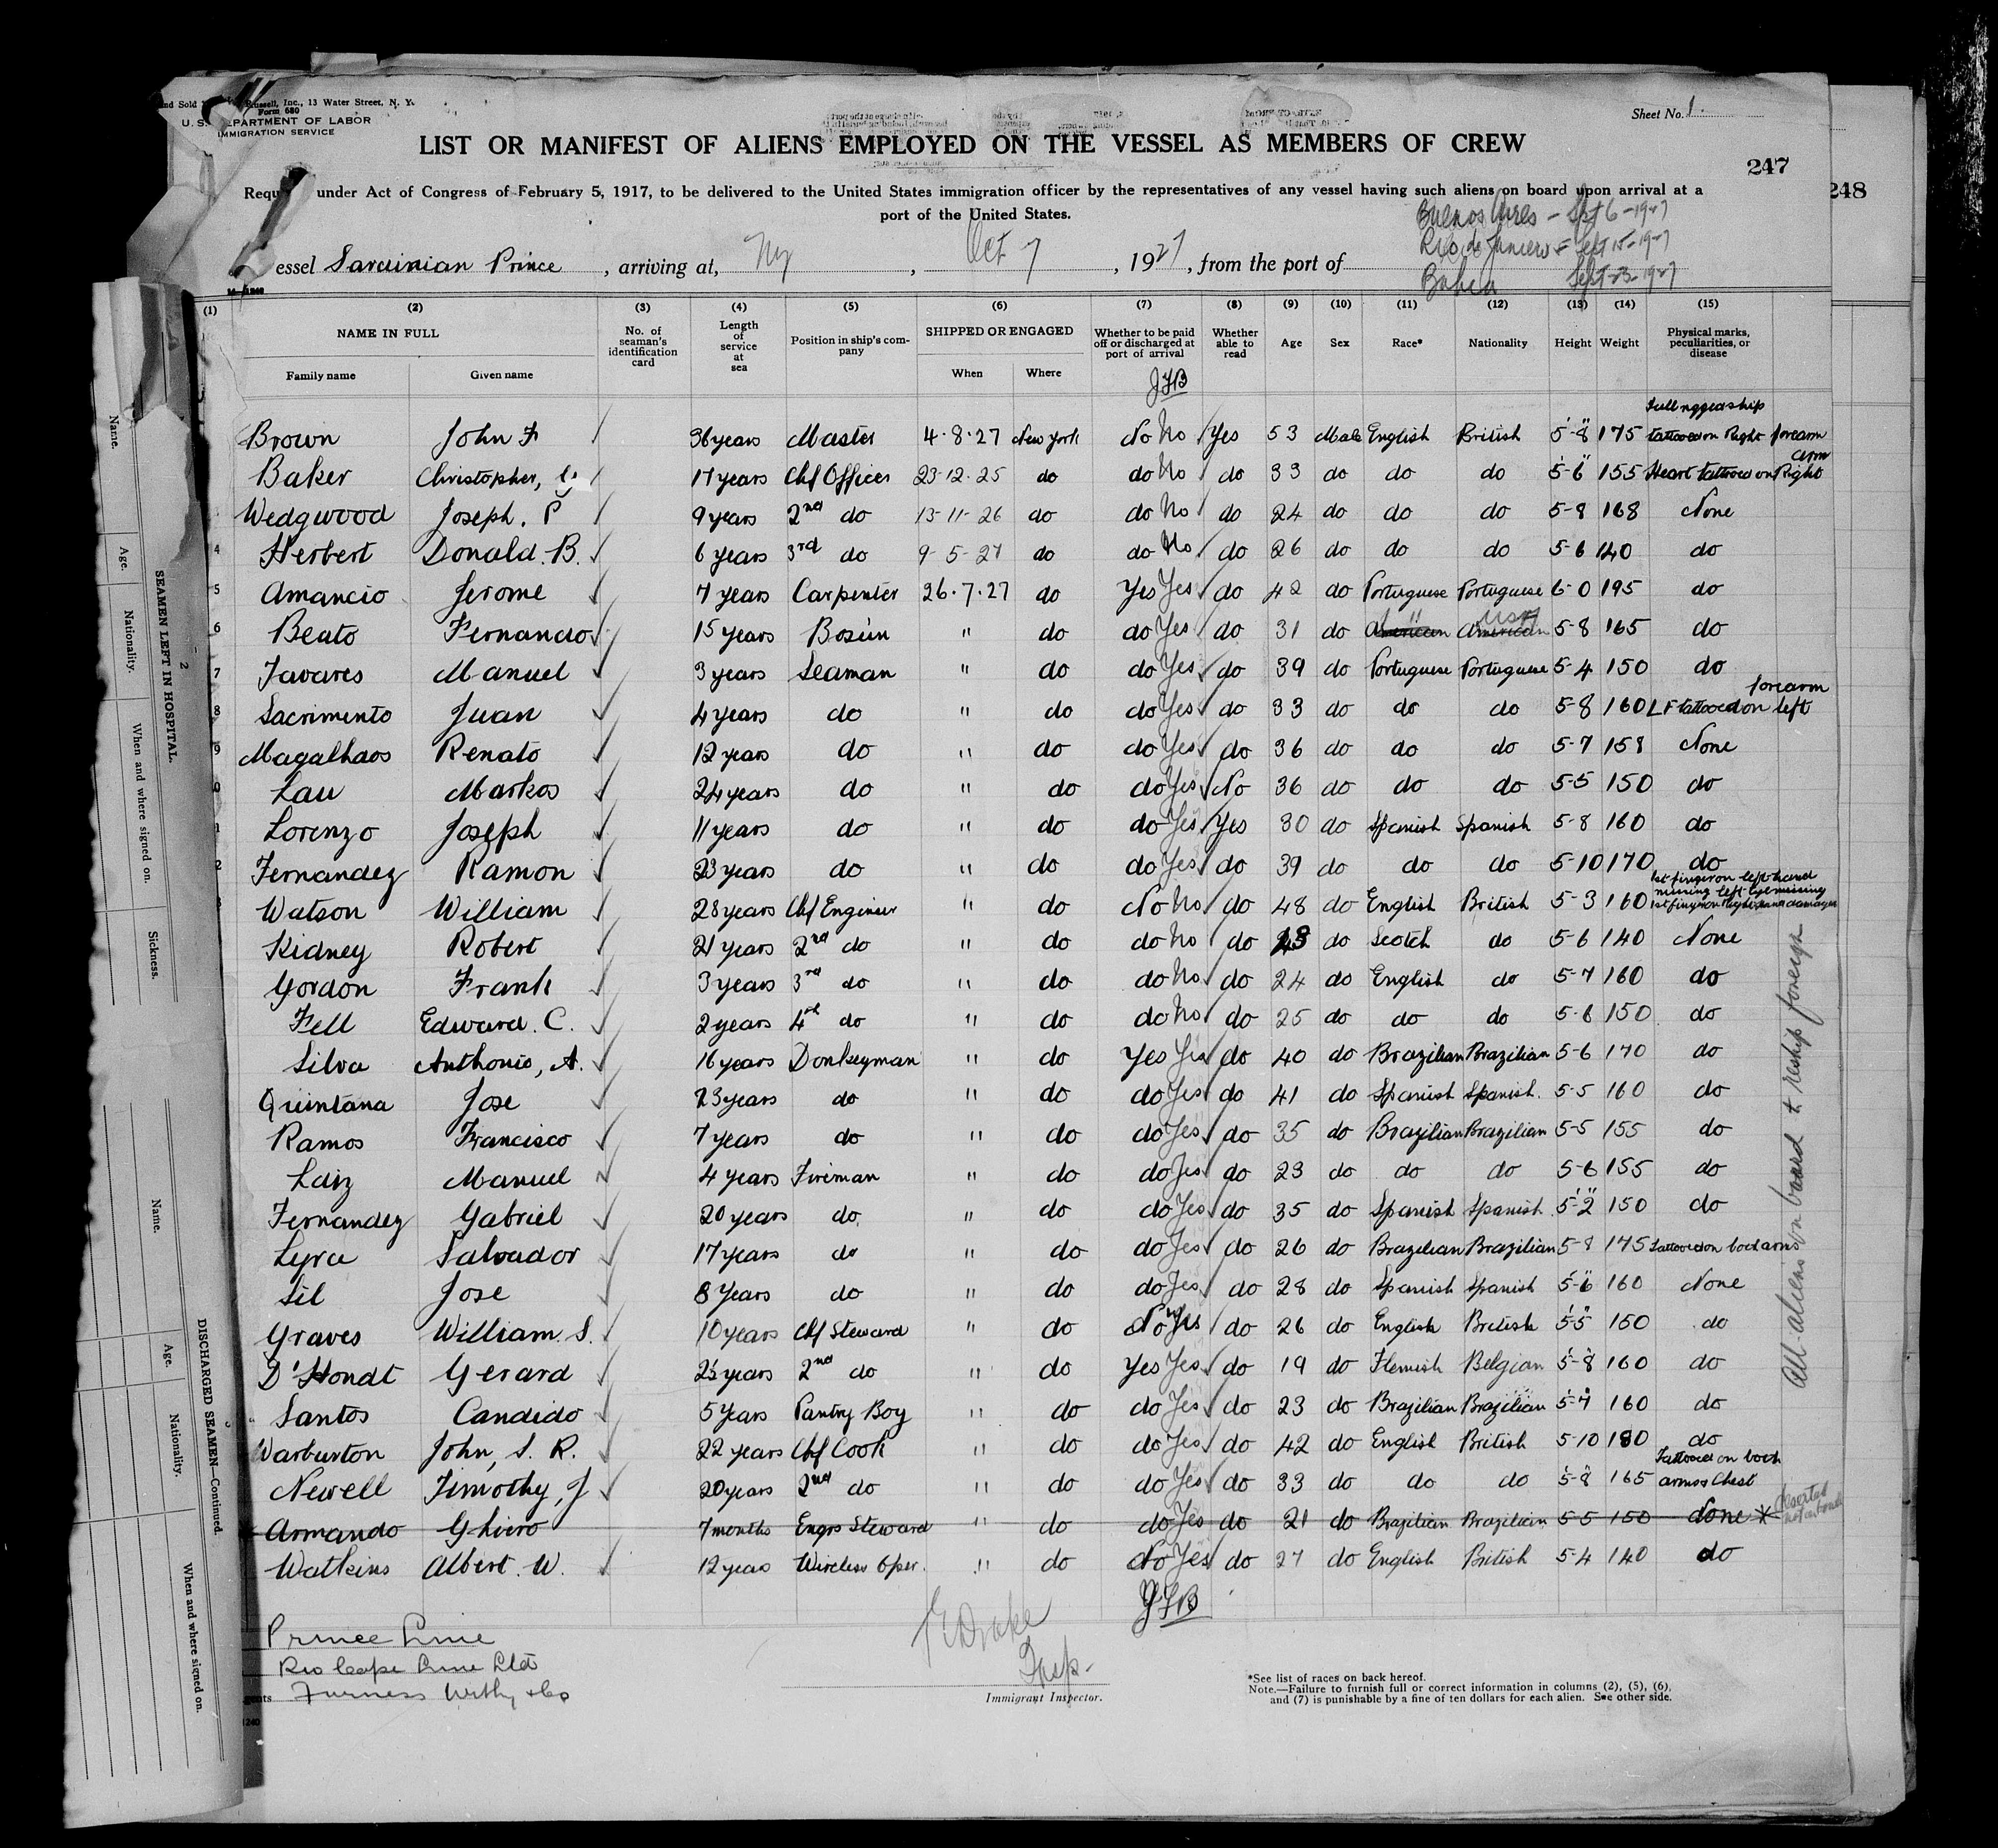 and Sold Russell, Inc., 13 Water Street, N. Y.
Form 680
U. S. DEPARTMENT OF LABOR
IMMIGRATION SERVICE
Sheet No. 1
LIST OR MANIFEST OF ALIENS EMPLOYED ON THE VESSEL AS MEMBERS OF CREW
247
248
Requ under Act of Congress of February 5, 1917, to be delivered to the United States immigration officer by the representatives of any vessel having such aliens on board upon arrival at a
port of the United States.
Buenos Aires - Sept 6-1927
Rio de Janiero - Sept 15-1927
Bahia Sept-23-1927
essel Sardinian Prince, arriving at, Ny, Oct 7, 1927, from the port of
(1) (2) (3) (4) (5) (6) (7) (8) (9) (10) (11) (12) (13) (14) (15)
NAME IN FULL No. of seaman's identification card Length of service at sea Position in ship's company SHIPPED OR ENGAGED Whether to be paid off or discharged at port of arrival Whether able to read Age Sex Race* Nationality Height Weight Physical marks, peculiarities, or disease
Family name Given name When Where
JFB
Brown John F 36 years Master 4.8.27 New York No No Yes 53 Male English British 5-8 175 Full rigged ship tattooed on Right forearm
Baker Christopher, G 17 years Chf Officer 23.12.25 do do No do 33 do do do 5-6 155 Heart tattooed on Right arm
Wedgwood Joseph. P 9 years 2nd do 13-11-26 do do No do 24 do do do 5-8 168 None
4 Herbert Donald. B. 6 years 3rd do 9-5-27 do do No do 26 do do do 5-6 140 do
5 Amancio Jerome 7 years Carpenter 26.7.27 do Yes Yes do 42 do Portuguese Portuguese 6-0 195 do
6 Beato Fernando 15 years Bosun " do do Yes do 31 do American " American USA 5-8 165 do
7 Tavares Manuel 3 years Seaman " do do Yes do 39 do Portuguese Portuguese 5-4 150 do
8 Sacrimento Juan 4 years do " do do Yes do 33 do do do 5-8 160 LF tattooed on left forearm
9 Magalhaos Renato 12 years do " do do Yes do 36 do do do 5-7 158 None
0 Lau Markos 24 years do " do do Yes No 36 do do do 5-5 150 do
1 Lorenzo Joseph 11 years do " do do Yes Yes 30 do Spanish Spanish 5-8 160 do
2 Fernandez Ramon 23 years do " do do Yes do 39 do do do 5-10 170 do
Watson William 28 years Chf Engineer " do No No do 48 do English British 5-3 160 1st finger on left hand missing left eye missing 1st finger on right hand damaged
Kidney Robert 21 years 2nd do " do do No do 43 do Scotch do 5-6 140 None
Gordon Frank 3 years 3rd do " do do No do 24 do English do 5-7 160 do
Fell Edward. C. 2 years 4th do " do do No do 25 do do do 5-6 150 do
Silva Anthonio, A. 16 years Donkeyman " do Yes Yes do 40 do Brazilian Brazilian 5-6 170 do
Quintana Jose 23 years do " do do Yes do 41 do Spanish Spanish. 5-5 160 do
Ramos Francisco 7 years do " do do Yes do 35 do Brazilian Brazilian 5-5 155 do
Laiz Manuel 4 years Fireman " do do Yes do 23 do do do 5-6 155 do
Fernandez Gabriel 20 years do " do do Yes do 35 do Spanish Spanish 5-2 150 do
Lyra Salvador 17 years do " do do Yes do 26 do Brazilian Brazilian 5-8 175 Tattooed on both arms
Sil Jose 8 years do " do do Yes do 28 do Spanish Spanish 5-6 160 None
Graves William. S. 10 years Chf Steward " do No Yes do 26 do English British 5-5 150 do
D'Hondt Gerard 2½ years 2nd do " do Yes Yes do 19 do Flemish Belgian 5-8 160 do
Santos Candido 5 years Pantry Boy " do do Yes do 23 do Brazilian Brazilian 5-7 160 do
Warburton John, S. R. 22 years Chf Cook " do do Yes do 42 do English British 5-10 180 do
Newell Timothy, J 20 years 2nd do " do do Yes do 33 do do do 5-8 165 Tattooed on both arms & Chest
Armando Ghiero 7 months Engrs Steward " do do Yes do 21 do Brazilian Brazilian 5-5 150 None * Deserted not on board
Watkins Albert. W. 12 years Wireless Oper. " do No Yes do 27 do English British 5-4 140 do
JFB
All aliens on board & reship foreign
Prince Line
Rio Cape Line Ltd
gents Furness Withy & Co
1240
Drake
Insp.
Immigrant Inspector.
*See list of races on back hereof.
Note.—Failure to furnish full or correct information in columns (2), (5), (6), and (7) is punishable by a fine of ten dollars for each alien. See other side.
SEAMEN LEFT IN HOSPITAL.
2
Name. Age. Nationality. When and where signed on. Sickness.
DISCHARGED SEAMEN—Continued.
Name. Age. Nationality. When and where signed on.